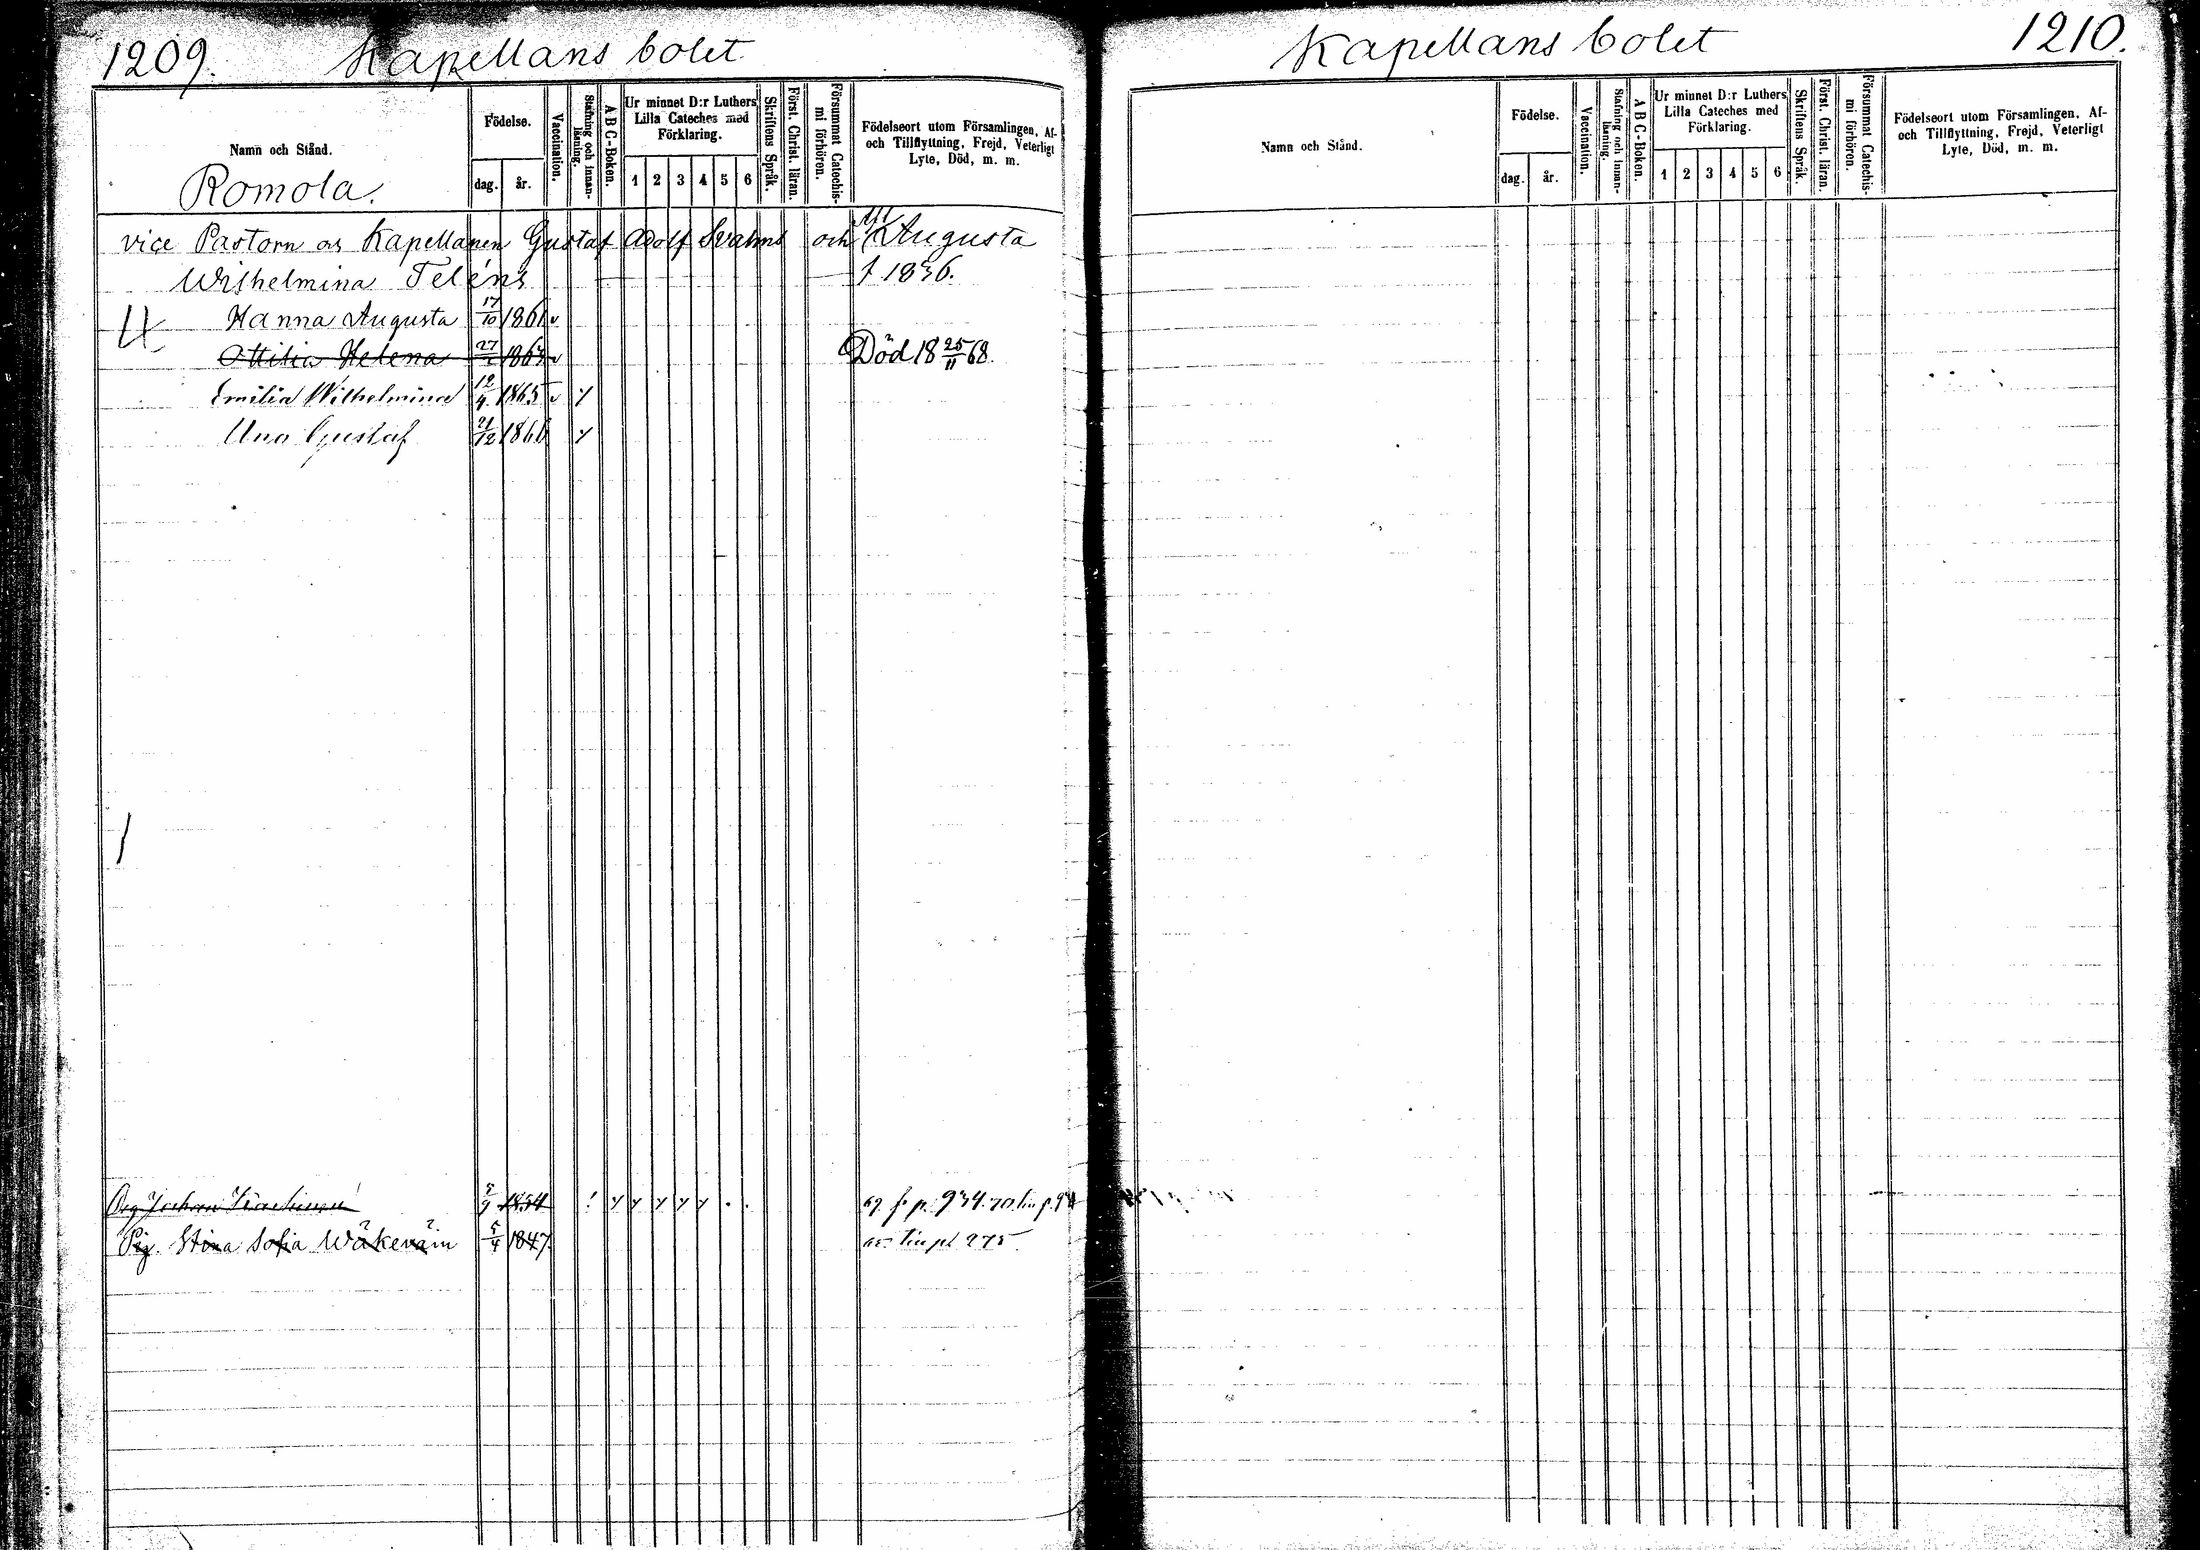 1209. Kapellans bolet
Namn och Stånd.
Födelse.
dag. år.
Vaccination.
Stafning och innan-läsning.
A B C-Boken.
Ur minnet D:r Luthers Lilla Cateches med Förklaring.
1 2 3 4 5 6
Skriftens Språk.
Först. Christ. läran.
Försummat Catechis-mi förhören.
Födelseort utom Församlingen, Af- och Tillflyttning, Frejd, Veterligt Lyte, Död, m. m.
Romola.
vice Pastorn och Kapellanen Gustaf Adolf Svahns och Augusta
Wilhelmina Teléns f 1836.
Hanna Augusta 17/10 1861 v
Ottilia Helena 27 1863 v Död 18 25/11 68.
Emilia Wilhelmina 12/4 1865 v y
Uno Gustaf 21/12 1866 y
5/9 1854 69 fr p. 934. 70 till p.
Pig. Stina Sofia Wäkeväin 5/4 1847 275
Kapellans bolet 1210.
Namn och Stånd.
Födelse.
dag. år.
Vaccination.
Stafning och innan-läsning.
A B C-Boken.
Ur minnet D:r Luthers Lilla Cateches med Förklaring.
1 2 3 4 5 6
Skriftens Språk.
Först. Christ. läran.
Försummat Catechis-mi förhören.
Födelseort utom Församlingen, Af- och Tillflyttning, Frejd, Veterligt Lyte, Död, m. m.